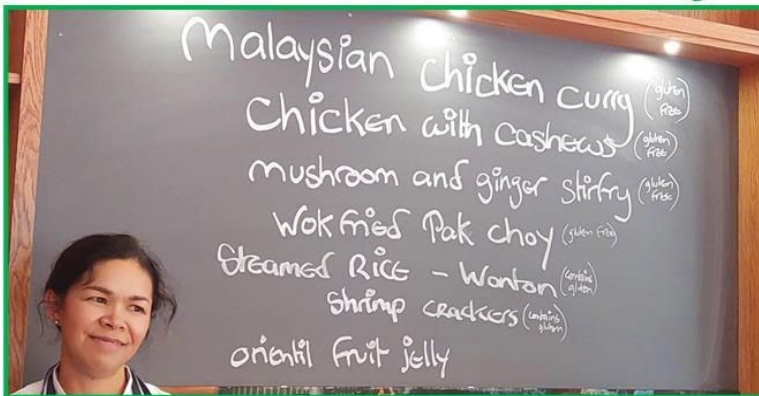 Malaysian Chicken curry (gluten free)
Chicken with cashews (gluten free)
mushroom and ginger stirfry (gluten free)
Wok fried Pak choy (gluten free)
Steamed Rice - Wonton (contains gluten)
Shrimp crackers (contains gluten)
oriental fruit jelly